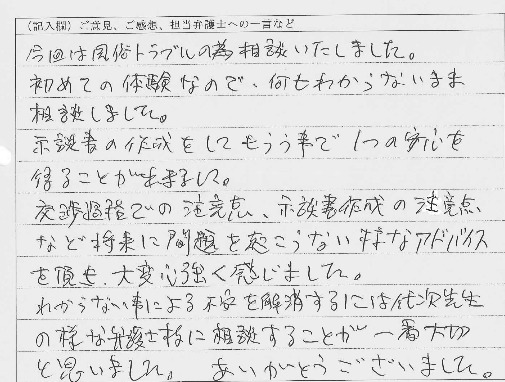 (記入欄)ご意見、ご感想、担当弁護士への一言など
今回は風俗トラブルの為相談いたしました。
初めての体験なので、何もわからないまま
相談しました。
示談書の作成をしてもらう事で1つの安心を
得ることが出来ました。
交渉過程での注意点、示談書作成の注意点、
など将来に問題を起こらない様なアドバイス
を頂き、大変心強く感じました。
わからない事による不安を解消するには
の様な弁護士様に相談することが一番大切
と思いました。 ありがとうございました。